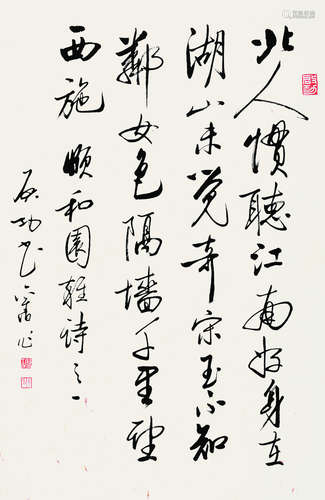 北人惯聴江南好身在
湖山未觉奇宋玉不知
鄰女色隔墙千里望
西施 颐和園雜诗之一
启功书